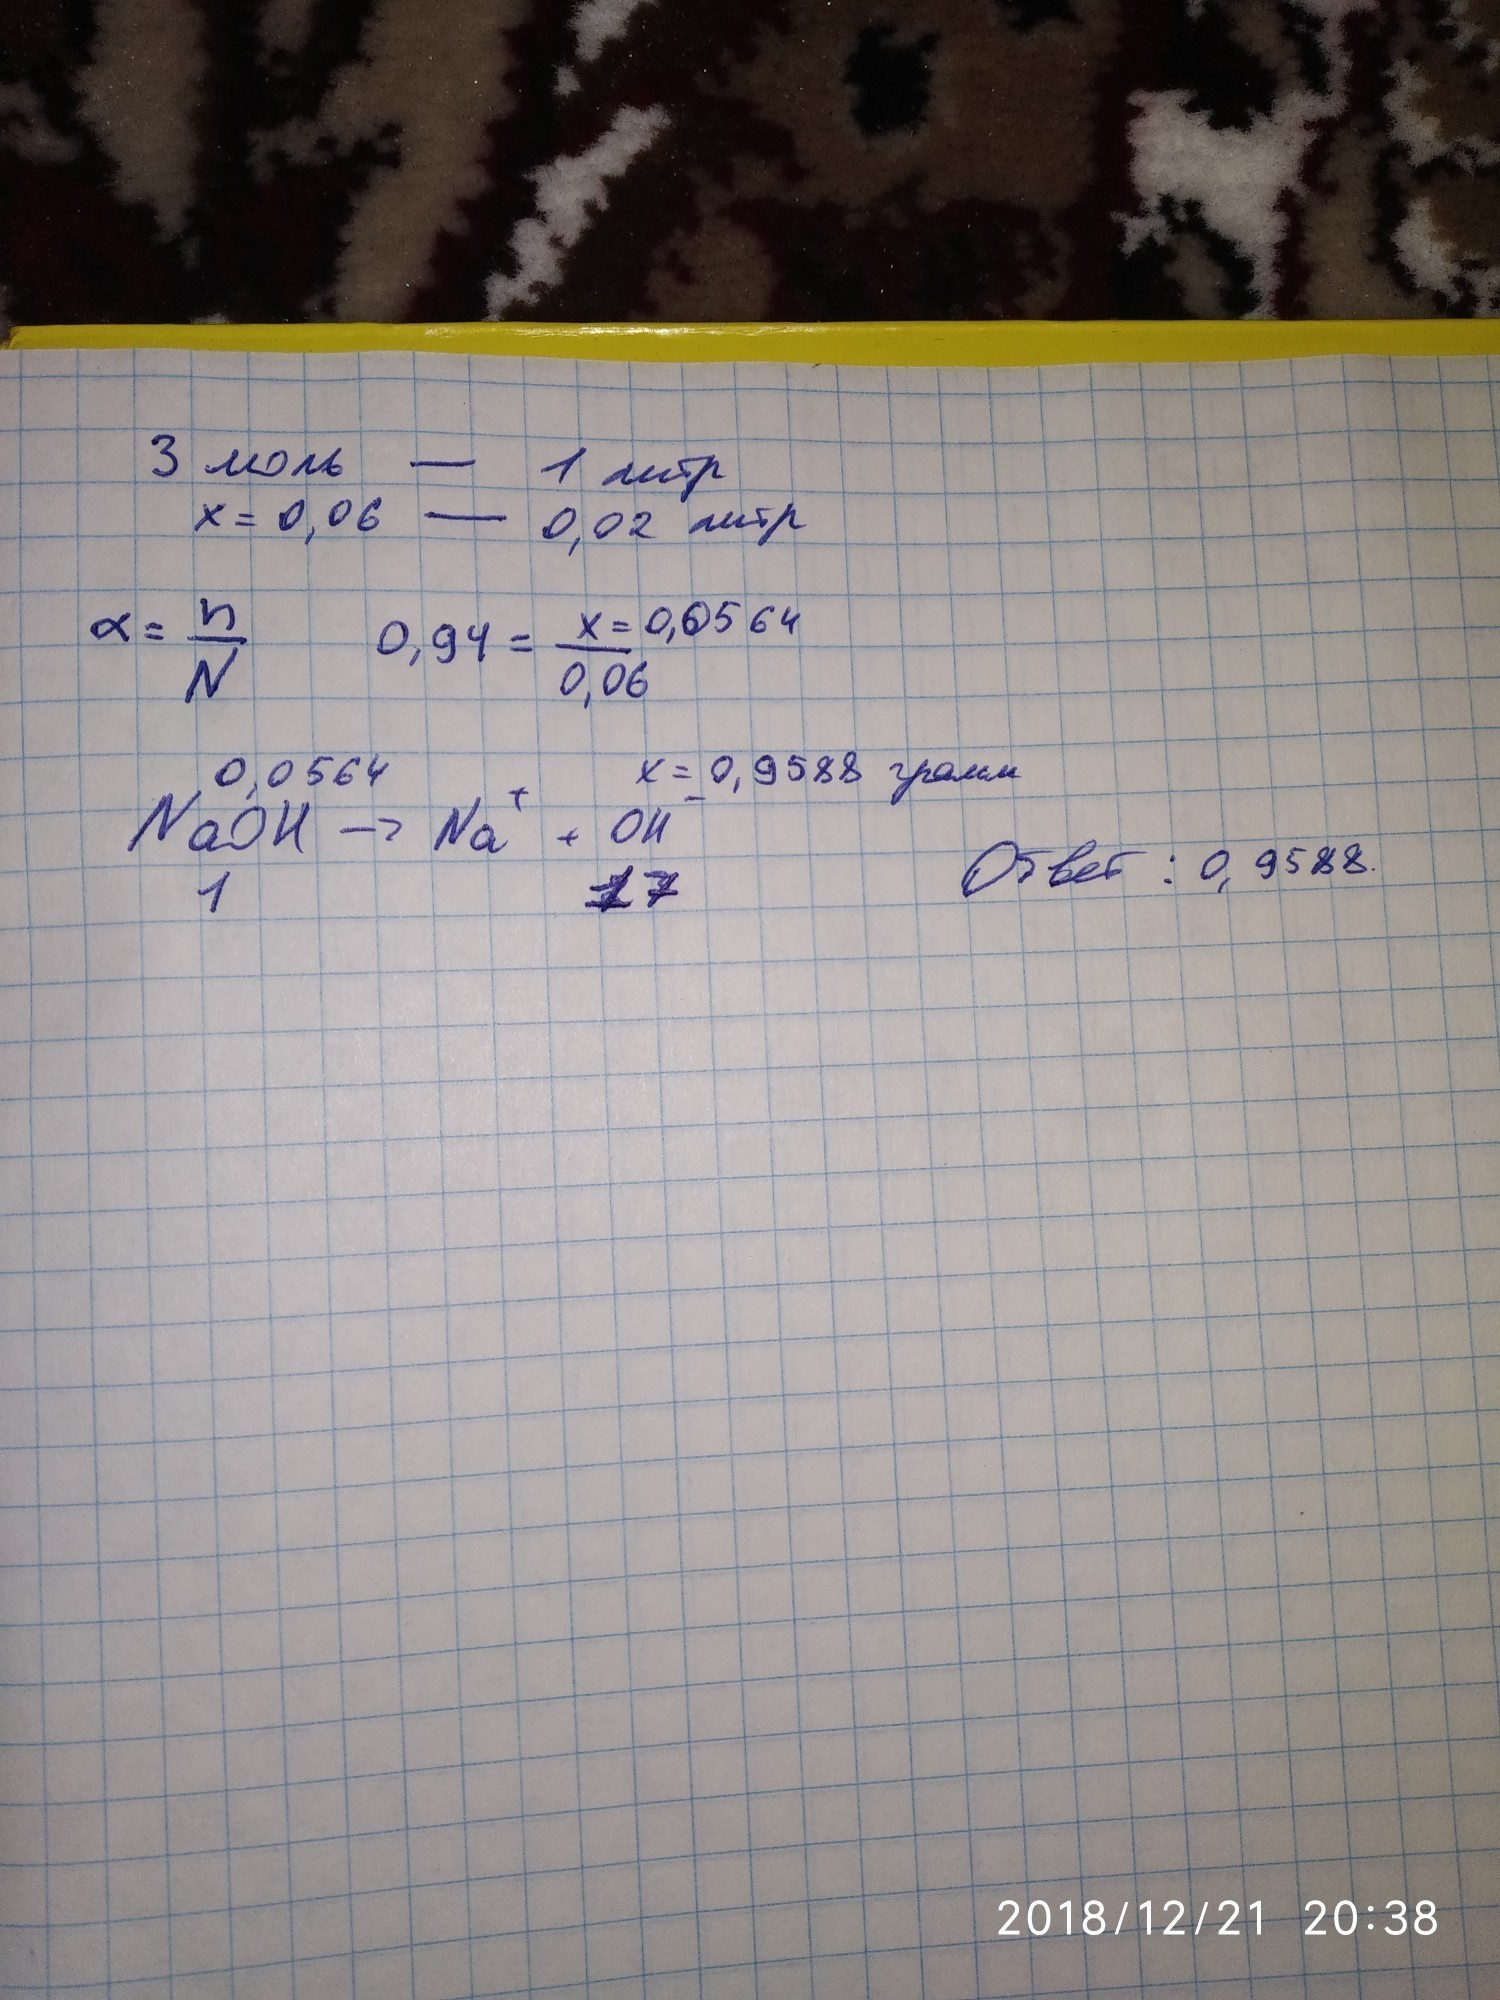 3 моль — 1 литр
x = 0,06 — 0,02 литр
α = n/N 0,94 = x = 0,0564/0,06
0,0564 x = 0,9588 грамм
NaOH → Na⁺ + OH⁻
1 17
Ответ : 0,9588.
2018/12/21 20:38